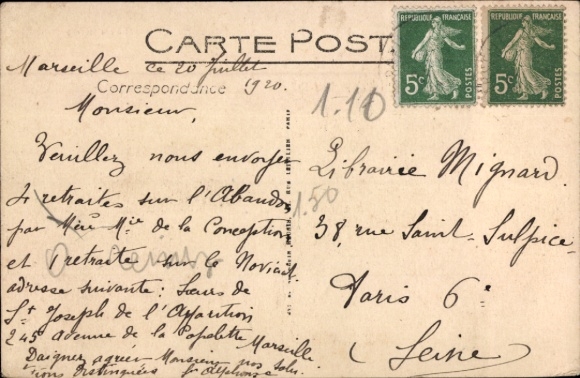 CARTE POSTALE
Correspondance
Marseille ce 20 Juillet
1920.
Monsieur,
Veuillez nous envoyer
4 retraites sur l'Aband.
par Mère Mie de la Conception
et 1 retraite sur le Noviciat
adresse suivante : Sœurs de
St Joseph de l'Apparition
245 avenue de la Capelette Marseille
Daignez agréer Monsieur nos Salu-
tions distinguées Sr Alphonse
1-10
1.50
REPUBLIQUE FRANÇAISE
5c
POSTES
REPUBLIQUE FRANÇAISE
5c
POSTES
Librairie Mignard
38, rue Saint-Sulpice
Paris 6e
(Seine)